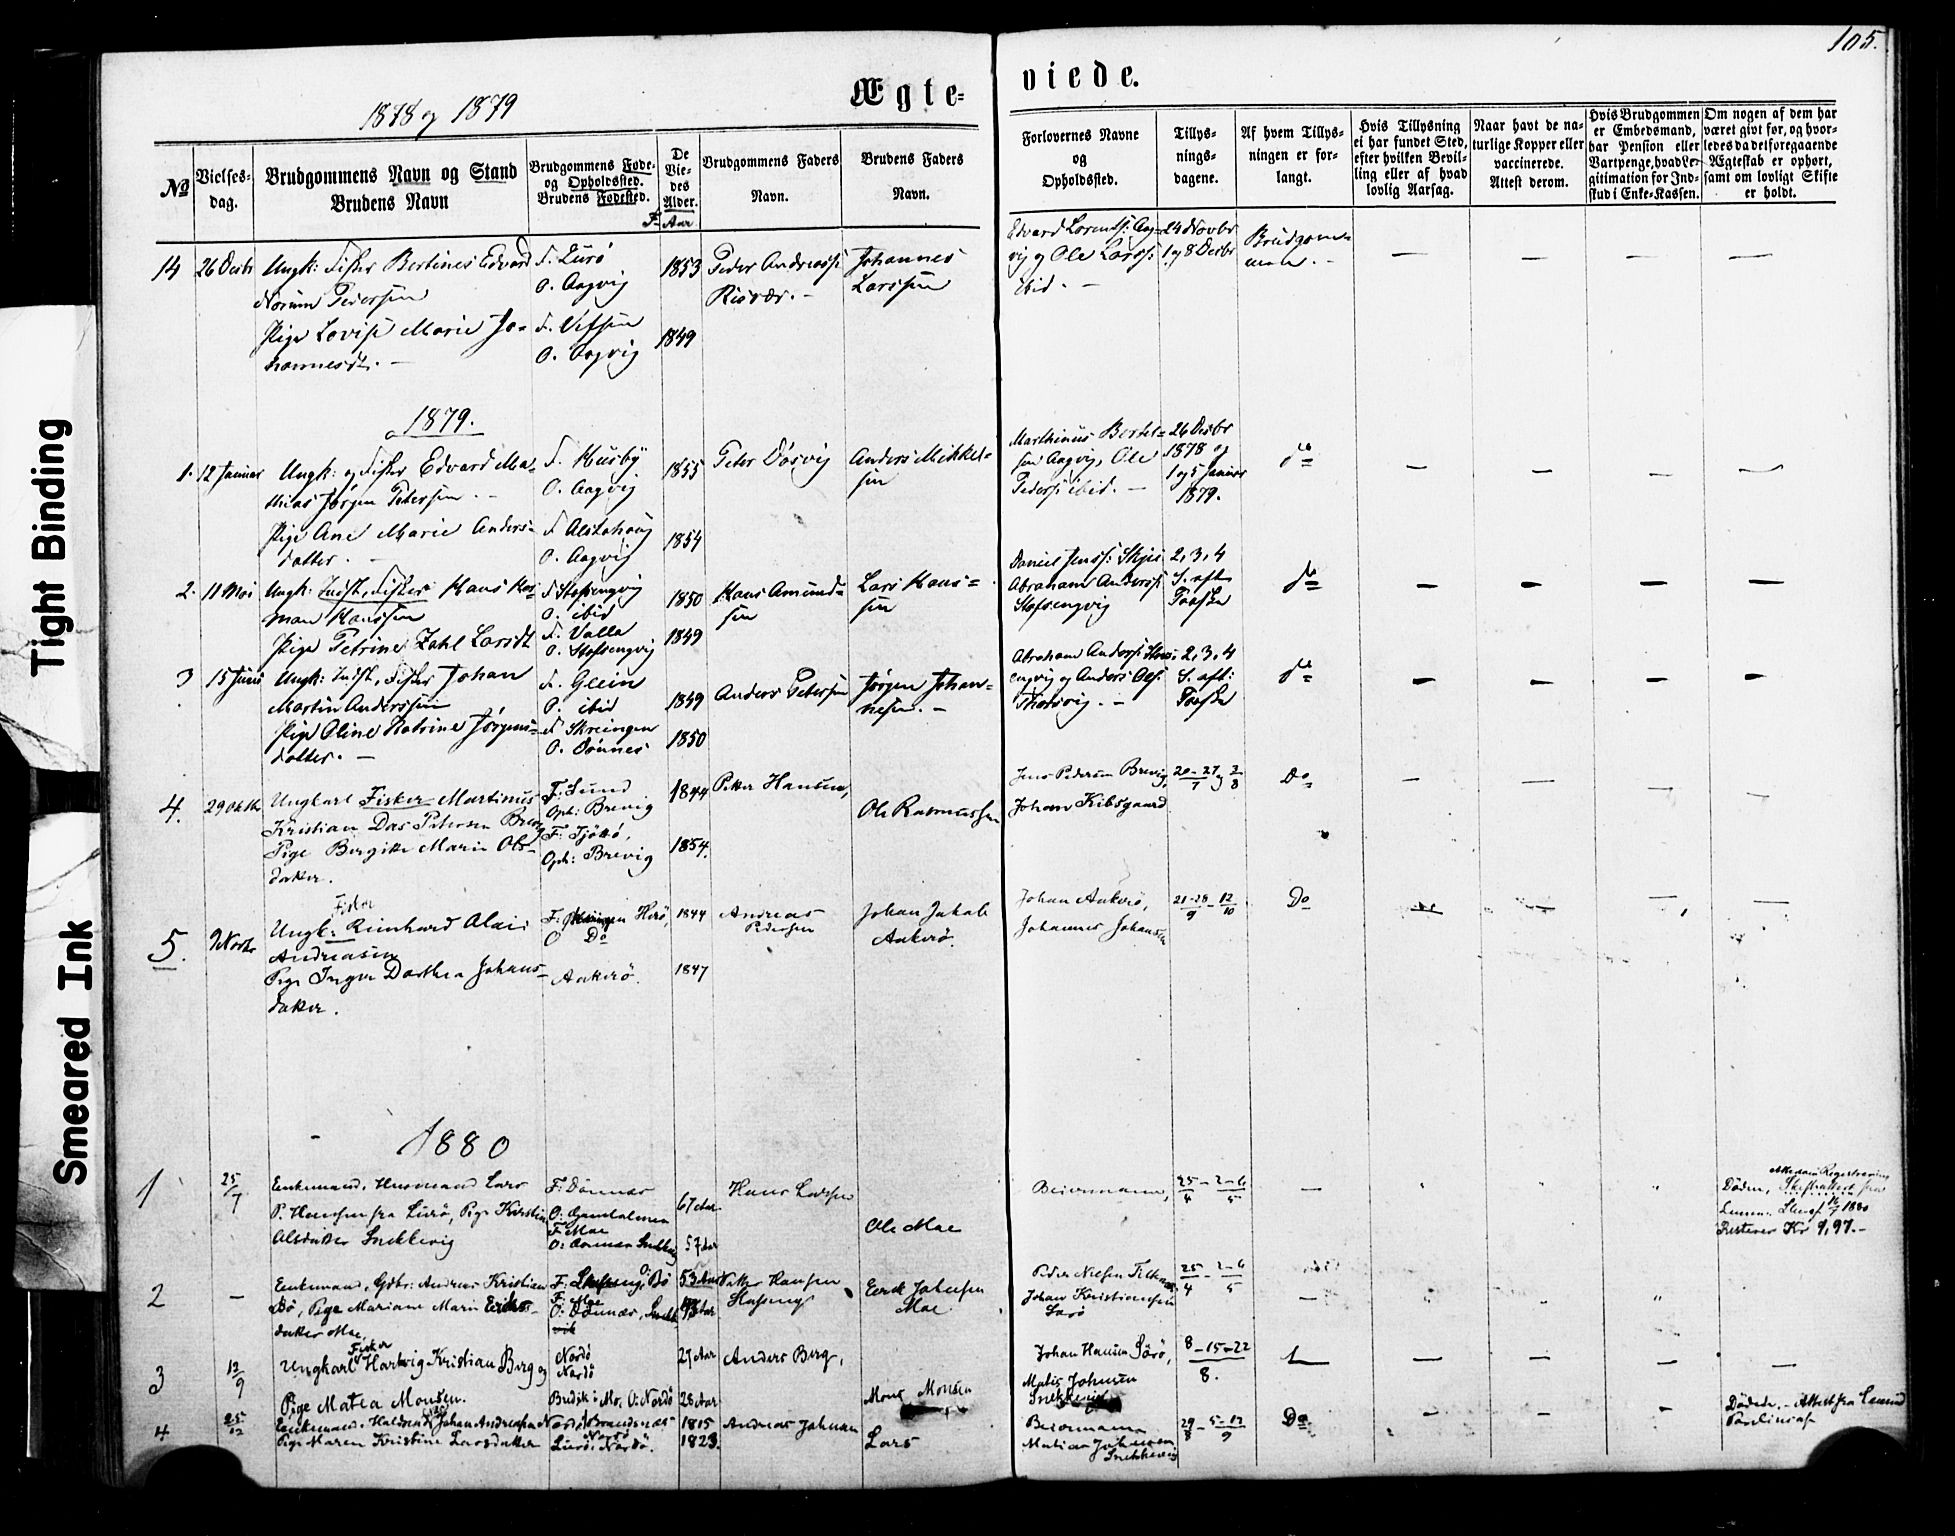 105.
1878 og 1879
Ægte= viede.
№
Vielses-
dag.
Brudgommens Navn og Stand
Brudens Navn
Brudgommens Føde-
og Opholdssted.
Brudens Fødested.
De
Vie-
des
Alder.
F. Aar
Brudgommens Faders
Navn.
Brudens Faders
Navn.
Forlovernes Navne
og
Opholdssted.
Tillys-
nings-
dagene.
Af hvem Tillys-
ningen er for-
langt.
Hvis Tillysning
ei har fundet Sted,
efter hvilken Bevil-
ling eller af hvad
lovlig Aarsag.
Naar havt de na-
turlige Kopper eller
vaccinerede.
Attest derom.
Hvis Brudgommen
er Embedsmand,
har Pension eller
Vartpenge, hvad Le-
gitimation for Ind-
skud i Enke-Kassen.
Om nogen af dem har
været givt før, og hvor-
ledes da det foregaaende
Ægteskab er ophørt,
samt om lovligt Skifte
er holdt.
14 26 Decbr Ungk: Fisker Bertines Edvard
Norum Pedersen
Pige Lovise Marie Jo-
hannesdtr. —
F. Lurø
O. Aagvig
F. Vefsen
O. Aagvig
1853
1849
Peder Andreass:
Risvær. —
Johannes
Larssen
Edvard Lorents: Aag-
vig og Ole Larss:
ibid. —
24 Novbr
1 og 8 Decbr
Brudgom-
men. —
1879.
1. 12 Januar Ungk: og Fisker Edvard Ma-
thias Jørgen Petersen. —
Pige Ane Marie Anders-
datter. —
F. Husby
O. Aagvig
F. Alstahoug
O. Aagvig
1855
1854
Peter Dosvig
Anders Mikkel-
sen
Marthinus Bertel-
sen Aagvig, Ole
Peders: ibid. —
26 Decbr
1878 og
1 og 5 Januar
1879.
do
2. 11 Mai Ungk: Indst, Fisker Hans Her-
man Hanssen
Pige Petrine Zahl Larsdt
F. Stofsengvig
O. ibid
F. Valla
O. Stofsengvig
1850
1849
Hans Amund-
sen
Lars Hans-
sen
Daniel Jenss: Skjei
Abraham Anderss:
Stofsengvig
2, 3, 4
S. aft
Paaske
do
3 15 Juni Ungk: Indst, Fisker Johan
Martin Anderssen
Pige Oline Katrine Jørgens-
datter. —
F. Glein
O. ibid
F. Skeingen
O. Dønnes
1849
1850
Anders Petersen
Jørgen Johan-
nesen. —
Abraham Anderss: Stofs-
engvig og Anders Ols:
2, 3, 4
S. aft:
Paaske
do
4. 29 Oktbr Ungkarl Fisker Martinus
Kristian Das Petersen Brevig
Pige Bergitte Marie Ols-
datter.
F: Sund
Oph: Brevig
F: Tjøtø,
Oph: Brevig
1844
1854.
Petter Hansen,
Ole Rasmussen
Jens Pedersen Brevig,
Johan Kibsgaard
20-27/7 og 3/8
Do
5. 9 Novbr
Fisker
Ungk: Reinhard Olai
Andreasen
Pige Inger Dorthea Johans-
datter.
F: Herø,
O Do
Aakerø.
1844
1847
Andreas
Pedersen
Johan Jakob
Aakerø.
Johan Aakerø,
Johannes Johansen
21-28/9 - 12/10
Do
1880
1 25/7 Enkemand, Husmand Lars
P. Hansen fra Lurø, Pige Kirstine
Olsdatter Snekkevig
F: Dønnes
O: Gamtalmen
F. Moe
O: Dønnes Snekkevig
67 Aar
57 Aar
Hans Larsen
Ole Moe
Beiermann,
25/4 - 2-6/5
Døden, Skifteattest fra
1880
Resterer Kr 9,97.—
2 — Enkemand, Gdbr: Andreas Kristian
Bø, Pige Mariane Marie Eriks-
datter Moe,
F: O: Bø
F: Moe
O: Dønnes, Snekke
vik
53 Aar
Petter Hansen
Erik Johnsen
Moe
Peder Nielsen
Johan Kristiansen
25/4 - 2-6/5
3 12/9
Fisker
Ungkarl Hartvig Kristian Berg og
Pige Matea Monsen.
Nordø
Nordø
27 Aar
28 Aar
Anders Berg,
Mons Monsen
Johan Hansen Sørø,
Matis Johnsen
Snekkevig
8-15-22/8.
4 25/12 Enkemand: Johan Andreasen
Pige Maren Kristine Larsdatter
Lurø: Nordø.
1815
1823.
Andreas Johnsen
Lars
Beiermann
Matias Johnsen
Snekkevig
29/8 - 5-12/9
Do
Døden, - Attest fra Lensmd